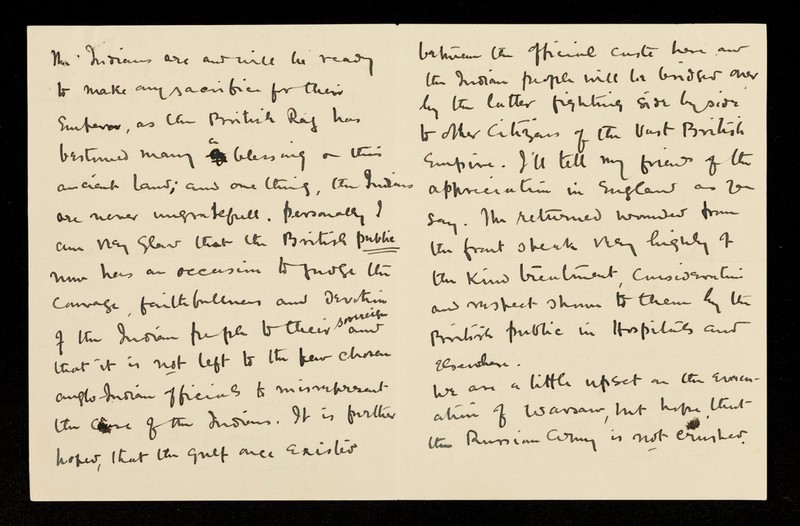 The Indians are and will be ready
to make any sacrifice for their
Emperor, as the British Raj has
bestowed many a blessing on this
ancient land; and one thing, the Indians
are never ungratefull. Personally I
am very glad that the British public
now has an occasion to judge the
courage, faithfullness and devotion
of the Indian people to their sovereign and
that it is not left to the few chosen
anglo-Indian officials to misrepresent
the case of the Indians. It is further
hoped, that the gulf once existed
between the official caste here and
the Indian people will be bridged over
by the latter fighting side by side
to other Citizens of the Vast British
Empire. I'll tell my friends of the
appreciation in England as you
say. The returned wounded from
the front speak very highly of
the Kind treatment, Consideration
and respect shown to them by the
British public in Hospitals and
elsewhere.
We are a little upset on the evacu-
ation of Warsaw, but hope, that
the Russian Army is not crushed.